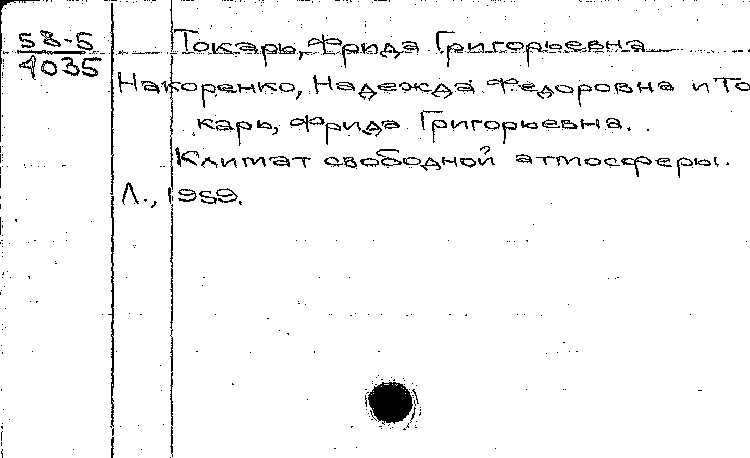 58-5
4035
Токарь, Фрида Григорьевна
Накоренко, Надежда Федоровна и То
карь, Фрида Григорьевна.
Климат свободной атмосферы.
Л., 1959.